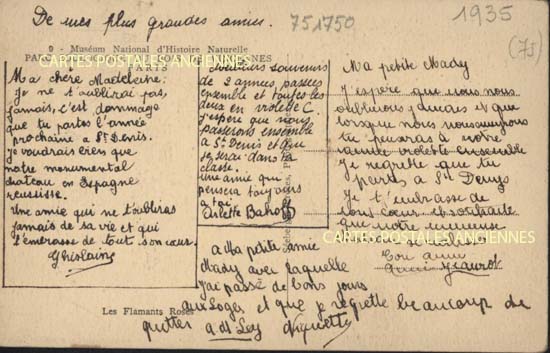 De mes plus grandes amies.
751750
1935
(75)
9 - Muséum National d'Histoire Naturelle
CARTES POSTALES ANCIENNES
PARIS
Ma chère Madeleine.
je ne t'oublirai pas,
jamais, c'est dommage
que tu partes l'année
prochaine à St Denis.
je voudrais bien que
notre monumental
chateau en Espagne
réussisse.
Une amie qui ne t'oubliras
jamais de sa vie et qui
t'embrasse de tout son cœur.
Ghislaine
Meilleurs souvenirs
de 2 années passées
ensemble et toutes les
deux en violette C.
j'espère que nous
passerons ensemble
à St Denis et que
je serai dans ta
classe.
une amie qui
pensera toujours
à toi.
Arlette
Ma petite Mady
J'espère que nous nous
oublierons jamais et que
lorsque nous nous
tu penseras à notre
année violette ensemble
Je regrette que tu
partes à St Denys
Je t'embrasse de
tout cœur et souhaite
que notre
CARTES POSTALES ANCIENNES
Ton amie
A Ma petite amie
Mady avec laquelle
j'ai passé de bons jours
aux Loges et que je regrette beaucoup de
quitter
Les Flamants Roses